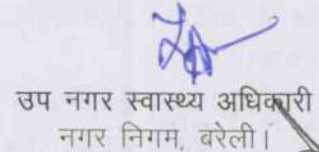 उप नगर स्वास्थ्य अधिकारी
नगर निगम, बरेली।